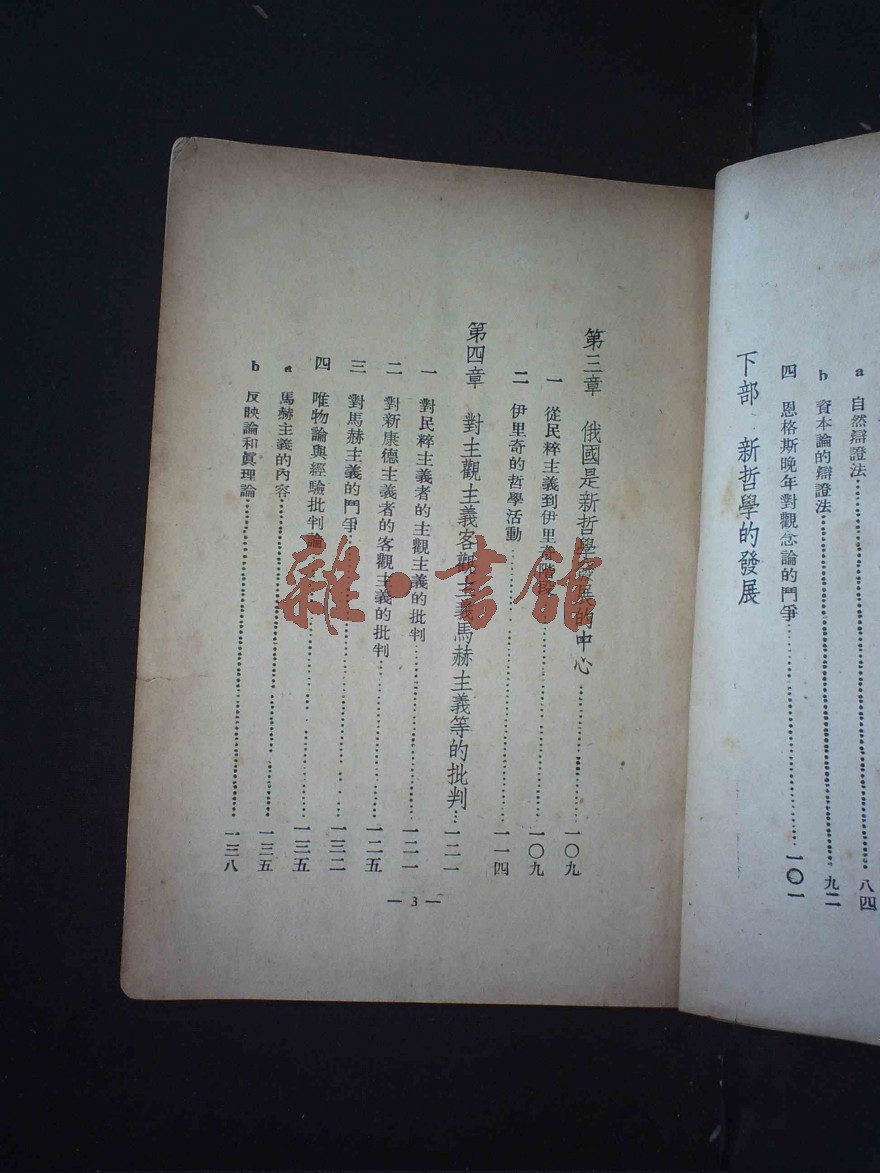 a 自然辯證法 八四
b 資本論的辯證法 九二
四 恩格斯晚年對觀念論的鬥爭 一〇一
下部 新哲學的發展
第三章 俄國是新哲學發展的中心 一〇九
一 從民粹主義到伊里奇階段 一〇九
二 伊里奇的哲學活動 一一四
第四章 對主觀主義客觀主義馬赫主義等的批判 一二一
一 對民粹主義者的主觀主義的批判 一二一
二 對新康德主義者的客觀主義的批判 一二五
三 對馬赫主義的鬥爭 一三二
四 唯物論與經驗批判論 一三五
a 馬赫主義的內容 一三五
b 反映論和眞理論 一三八
— 3 —
雜·書館